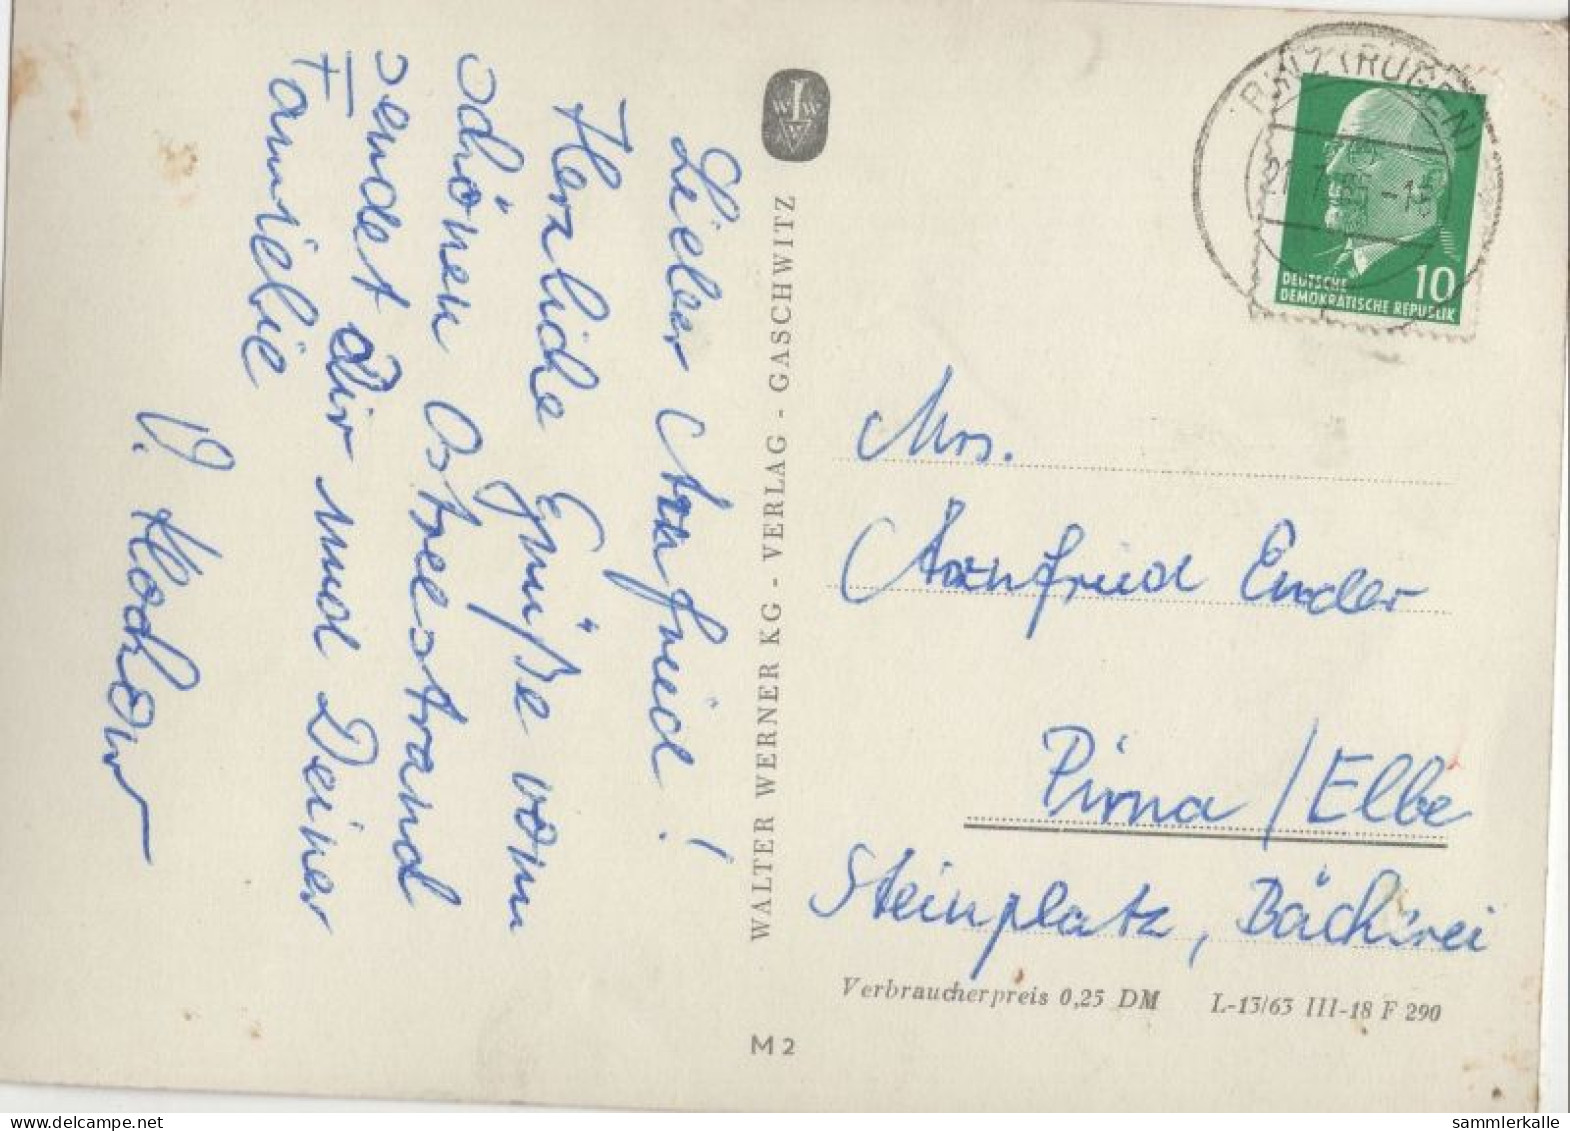 Lieber Arnfried!
Herzliche Grüße vom
schönen Ostseestrand
sendet Dir und Deiner
Familie
WALTER WERNER KG - VERLAG - GASCHWITZ
M 2
(RÜGEN)
DEUTSCHE
DEMOKRATISCHE REPUBLIK
10
Mrs.
Arnfried Ender
Pirna / Elbe
Steinplatz, Bäckerei
Verbraucherpreis 0,25 DM L-13/63 III-18 F 290
sammlerkalle